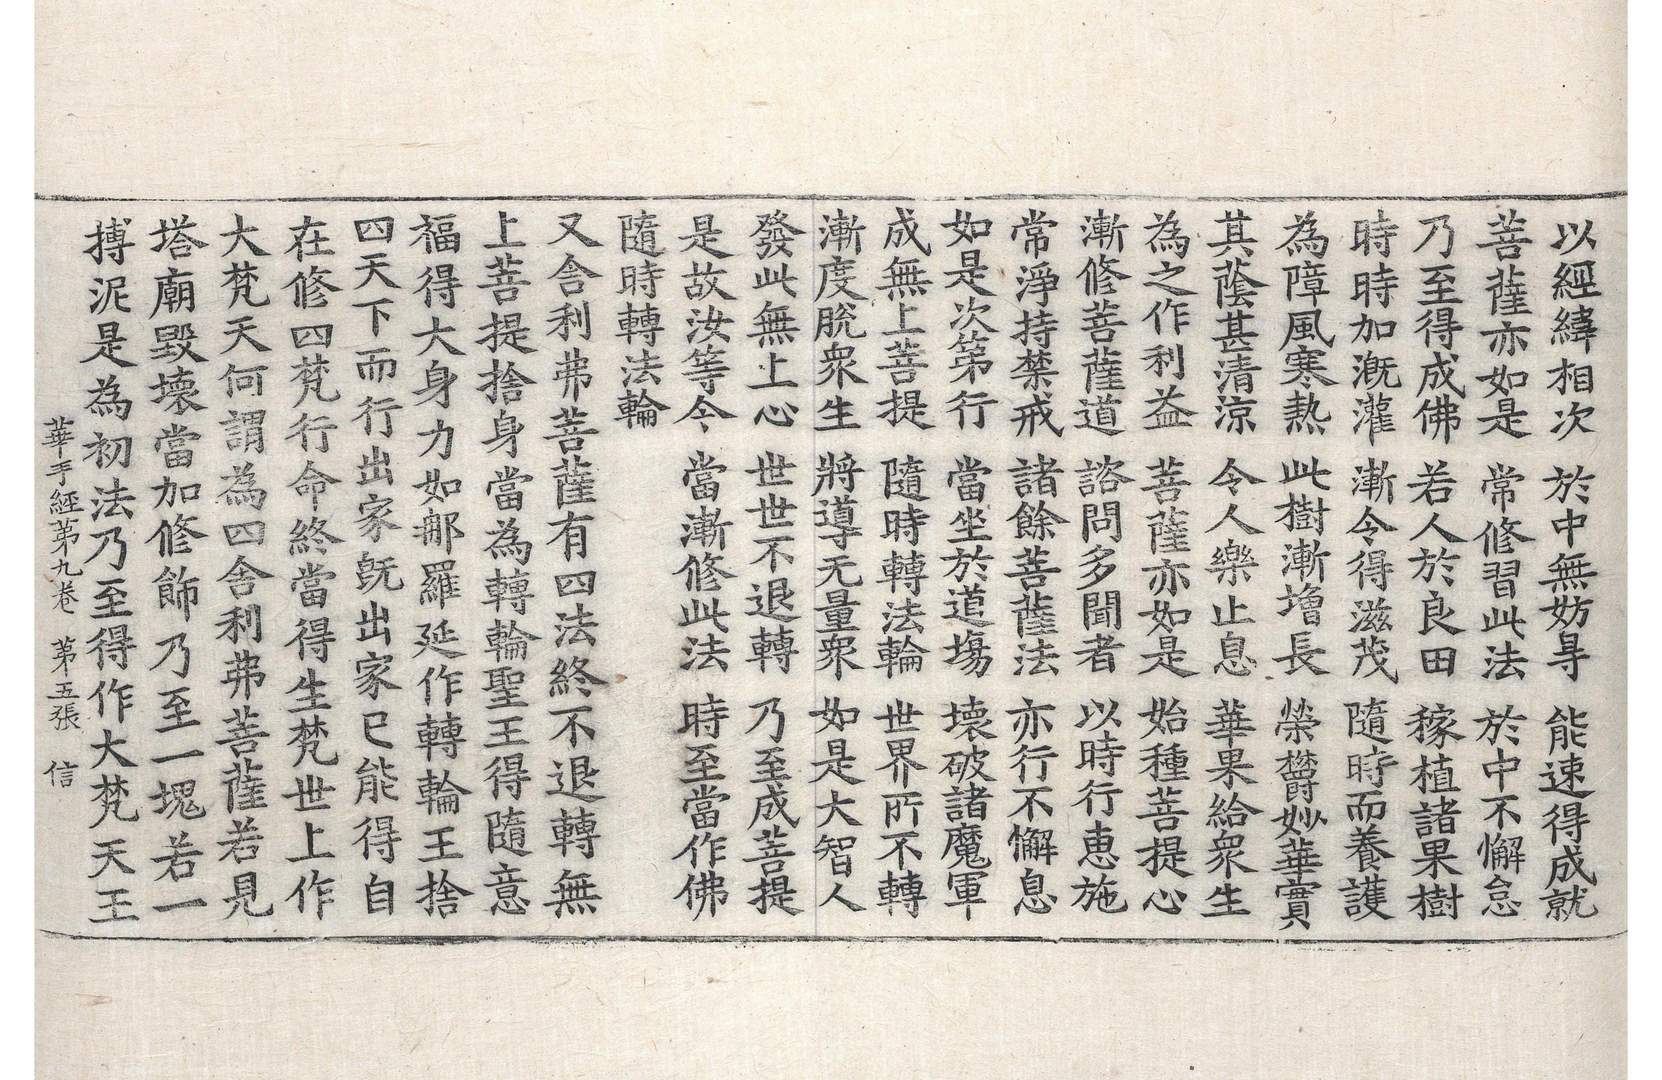 以經緯相次 於中無妨㝵 能速得成就
菩薩亦如是 常修習此法 於中不懈怠
乃至得成佛 若人於良田 稼植諸果樹
時時加溉灌 漸令得滋茂 隨時而養護
為障風寒熱 此樹漸增長 榮欝妙華實
其蔭甚清涼 令人樂止息 華果給衆生
為之作利益 菩薩亦如是 始種菩提心
漸修菩薩道 諮問多聞者 以時行恵施
常淨持禁戒 諸餘菩薩法 亦行不懈息
如是次第行 當坐於道場 壞破諸魔軍
成無上菩提 隨時轉法輪 世界所不轉
漸度脫衆生 將導无量衆 如是大智人
發此無上心 世世不退轉 乃至成菩提
是故汝等今 當漸修此法 時至當作佛
隨時轉法輪
又舍利弗菩薩有四法終不退轉無
上菩提捨身當為轉輪聖王得隨意
福得大身力如那羅延作轉輪王捨
四天下而行出家旣出家已能得自
在修四梵行命終當得生梵世上作
大梵天何謂為四舍利弗菩薩若見
塔廟毀壞當加修飾乃至一塊若一
摶泥是為初法乃至得作大梵天王
華手經第九卷 第五張 信